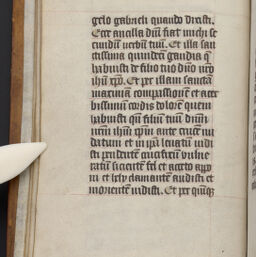 gelo gabrieli quando dixisti.
Ecce ancilla dñi fiat michi se
cundũ uerbũ tuũ. Et illa san
ctissima quindeci gaudia q̃
habuisti de filio tuo dño nr̃o
ihũ xp̃o. Et per illam sanctã
maximã compassionẽ et acer
bissimũ cordis dolorẽ quem
habuisti qñ filiũ tuũ dñm
nr̃m ihũm xp̃m ante crucẽ nu
datum et in ip̃a leuatũ uidi
sti pendentẽ crucifixũ vulne
ratũ sicientẽ fel et aceto appo
ni et hely clamantẽ audisti et
morientẽ uidisti. Et per quinq̃